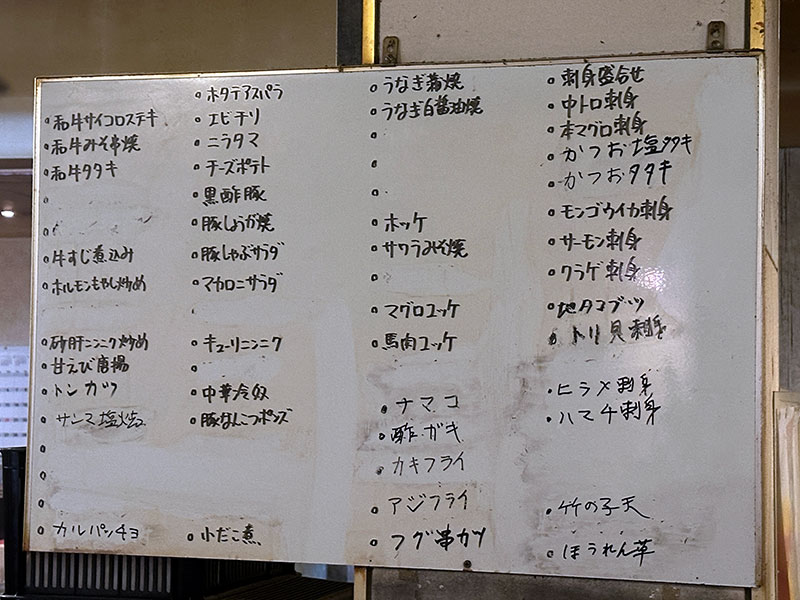 和牛サイコロステキ
和牛みそ串焼
和牛タタキ
牛すじ煮込み
ホルモンもやし炒め
砂肝ニンニク炒め
甘えび唐揚
トンカツ
サンマ塩焼
カルパッチョ
ホタテアスパラ
エビチリ
ニラタマ
チーズポテト
黒酢豚
豚しょうが焼
豚しゃぶサラダ
マカロニサラダ
キューリニンニク
中華冷奴
豚なんこつポンズ
小だこ煮
うなぎ蒲焼
うなぎ白醤油焼
ホッケ
サワラみそ焼
マグロユッケ
馬肉ユッケ
ナマコ
酢ガキ
カキフライ
アジフライ
フグ串カツ
刺身盛合せ
中トロ刺身
本マグロ刺身
かつお塩タタキ
かつおタタキ
モンゴウイカ刺身
サーモン刺身
クラゲ刺身
地タコブツ
トリ貝刺身
ヒラメ刺身
ハマチ刺身
竹の子天
ほうれん草